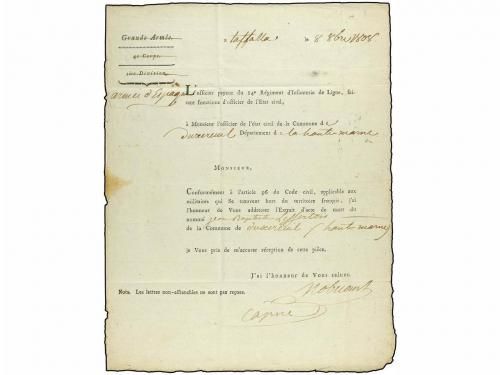 Grande Armée.
4e Corps.
1ère Division
armée d'Espagne
à taffalla le 8 8bre 1808
L'officier payeur du 24e Régiment d'Infanterie de Ligne, fai-
sant fonctions d'officier de l'Etat civil,
à Monsieur l'officier de l'état civil de la Commune de
Département de la haute marne
MONSIEUR,
Conformément à l'article 96 du Code civil, applicable aux
militaires qui se trouvent hors du territoire français, j'ai
l'honneur de Vous addresser l'Extrait d'acte de mort du
nommé jean Baptiste
de la Commune de (haute marne)
Je Vous prie de m'accuser réception de cette pièce,
J'ai l'honneur de Vous saluer.
Nota. Les lettres non-affranchies ne sont pas reçues.